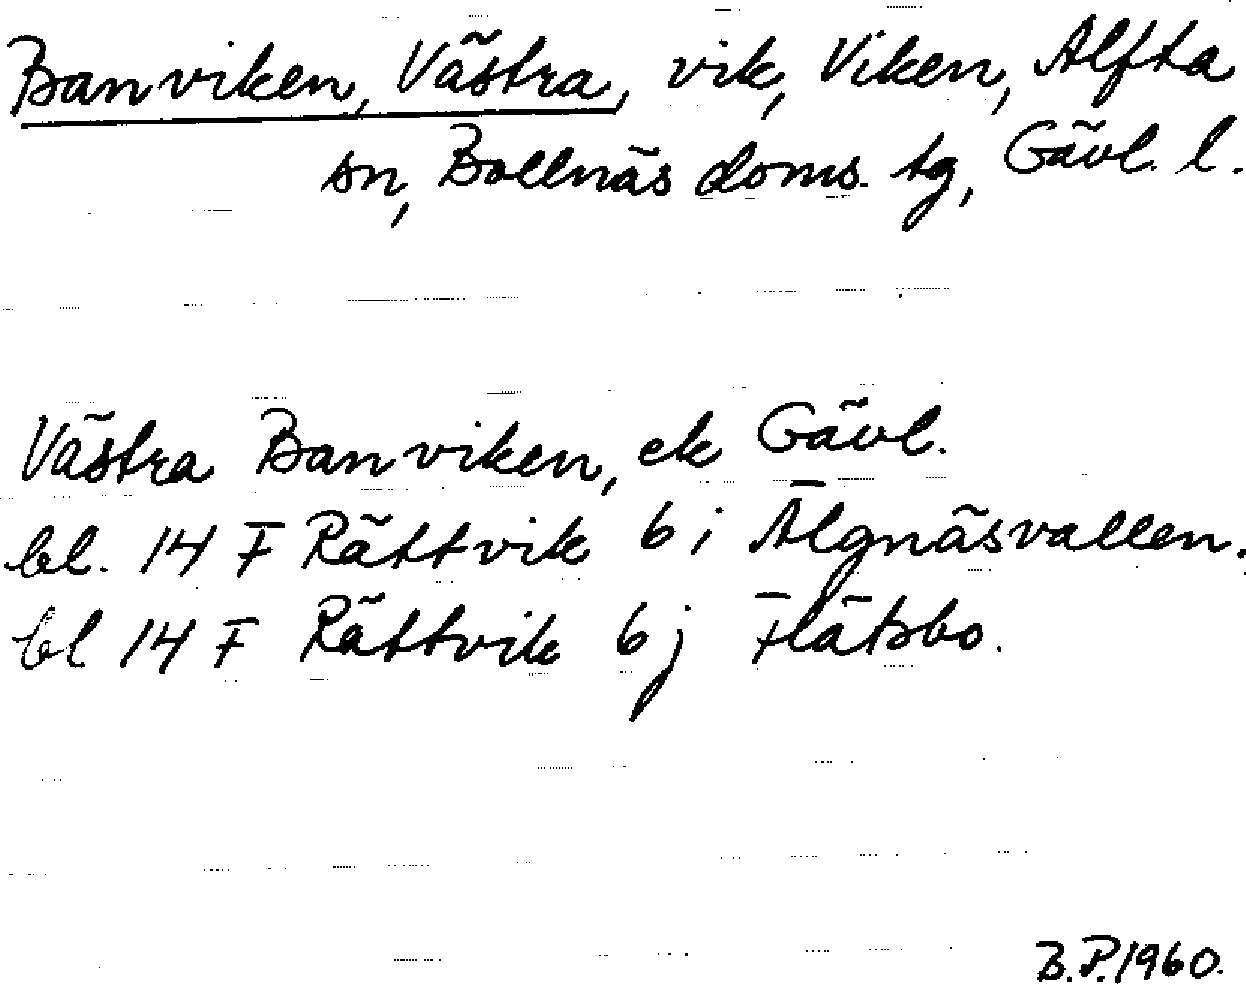 Banviken, Västra, vik, Viken, Alfta
sn, Bollnäs doms. tg, Gävl. l.
Västra Banviken, ek Gävl.
bl. 14 F Rättvik 6 i Älgnäsvallen.
bl 14 F Rättvik 6 j Flätsbo.
B.P. 1960.